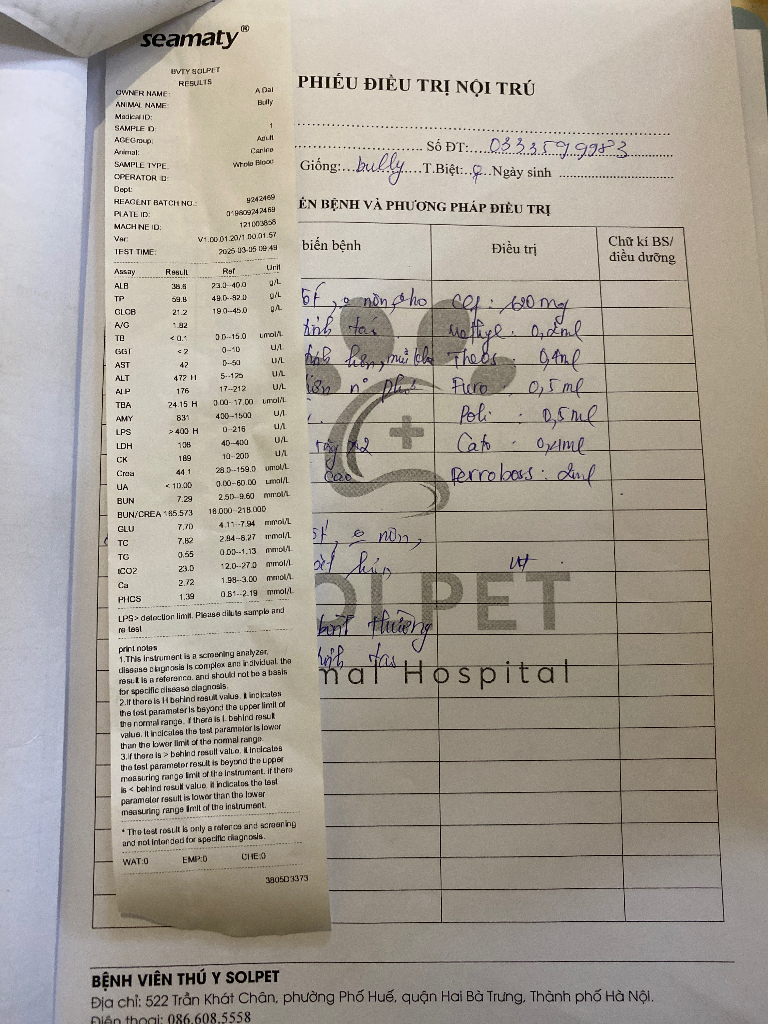 seamaty®
BVTY SOLPET
RESULTS
OWNER NAME: A Dai
ANIMAL NAME: Bully
Medical ID:
SAMPLE ID: 1
AGEGroup: Adult
Animal: Canine
SAMPLE TYPE: Whole Blood
OPERATOR ID:
Dept:
REAGENT BATCH NO.: 9242469
PLATE ID: 019809242469
MACHINE ID: 121003858
Ver: V1.00.01.20/1.00.01.57
TEST TIME: 2025-03-05 09:49
Assay Result Ref Unit
ALB 38.6 23.0--40.0 g/L
TP 59.8 49.0--82.0 g/L
GLOB 21.2 19.0--45.0 g/L
A/G 1.82
TB < 0.1 0.0--15.0 umol/L
GGT < 2 0--10 U/L
AST 42 0--50 U/L
ALT 472 H 5--125 U/L
ALP 176 17--212 U/L
TBA 24.15 H 0.00--17.00 umol/L
AMY 831 400--1500 U/L
LPS > 400 H 0--216 U/L
LDH 106 40--400 U/L
CK 189 10--200 U/L
Crea 44.1 28.0--159.0 umol/L
UA < 10.00 0.00--60.00 umol/L
BUN 7.29 2.50--9.60 mmol/L
BUN/CREA 165.573 16.000--218.000
GLU 7.70 4.11--7.94 mmol/L
TC 7.82 2.84--8.27 mmol/L
TG 0.55 0.00--1.13 mmol/L
tCO2 23.0 12.0--27.0 mmol/L
Ca 2.72 1.98--3.00 mmol/L
PHOS 1.39 0.81--2.19 mmol/L
LPS> detection limit. Please dilute sample and
re test
print notes
1.This instrument is a screening analyzer,
disease diagnosis is complex and individual. the
result is a reference, and should not be a basis
for specific disease diagnosis.
2.If there is H behind result value. It indicates
the test parameter is beyond the upper limit of
the normal range. if there is L behind result
value. It indicates the test parameter is lower
than the lower limit of the normal range.
3.If there is > behind result value. It indicates
the test parameter result is beyond the upper
measuring range limit of the instrument. If there
is < behind result value. It indicates the test
parameter result is lower than the lower
measuring range limit of the instrument.
* The test result is only a referece and screening
and not intended for specific diagnosis.
WAT:0 EMP:0 CHE:0
3805D3373
PHIẾU ĐIỀU TRỊ NỘI TRÚ
Số ĐT: 0333599983
Giống: bully T.Biệt: ♀ Ngày sinh
ẾN BỆNH VÀ PHƯƠNG PHÁP ĐIỀU TRỊ
biến bệnh Điều trị Chữ kí BS/
điều dưỡng
nôn, ho
mg
0,2ml
0,4ml
Furo : 0,5 ml
Poli : 0,5ml
Cato : 0,4ml
Ferroboss : 2ml
nôn,
bình thường
OLPET
mal Hospital
BỆNH VIỆN THÚ Y SOLPET
Địa chỉ: 522 Trần Khát Chân, phường Phố Huế, quận Hai Bà Trưng, Thành phố Hà Nội.
Điện thoại: 086.608.5558